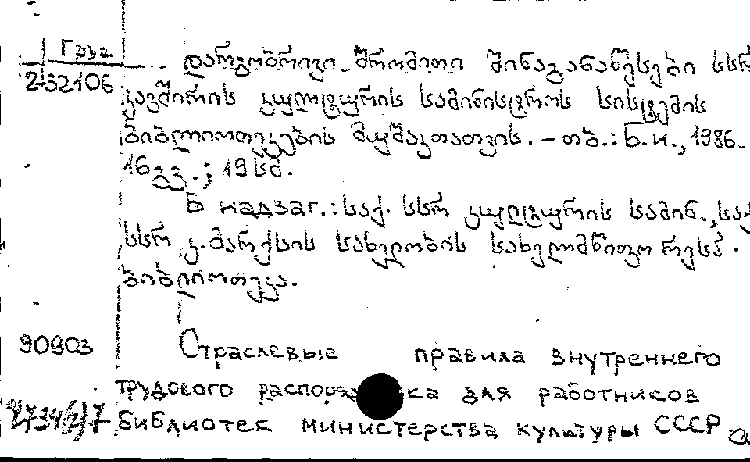 Груз
2-32106
დარგობრივი შრომითი შინაგანაწესები სსრ
კავშირის კულტურის სამინისტროს სისტემის
ბიბლიოთეკების მუშაკთათვის. – თბ.: Б.и., 1986.
16 გვ. ; 19 სმ.
В надзаг.: საქ. სსრ კულტურის სამინ., საქ
სსრ კ. მარქსის სახელობის სახელმწიფო რესპ.
ბიბლიოთეკა.
90903
Отраслевые правила внутреннего
трудового распорядка для работников
библиотек министерства культуры СССР